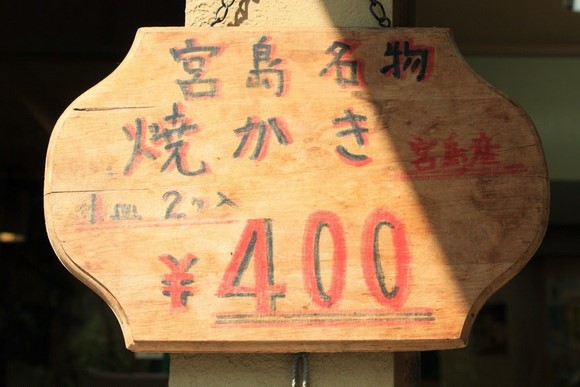 宮島名物
焼がき
宮島産
1皿 2コ入
¥400